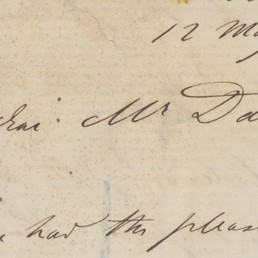 12 M
Mr Da
had the pleas